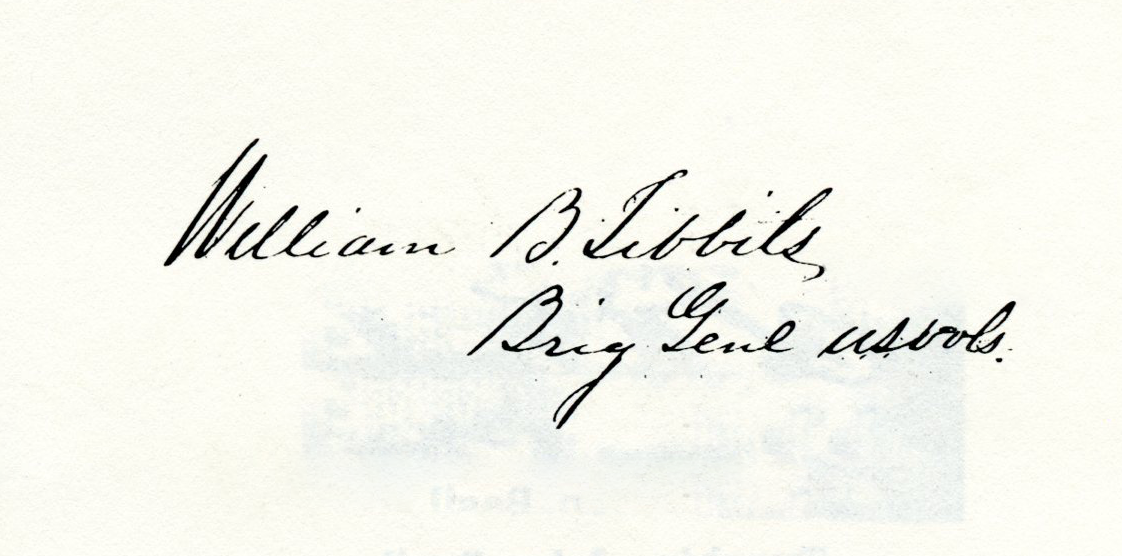 William B. Tibbits
Brig Genl USVols.